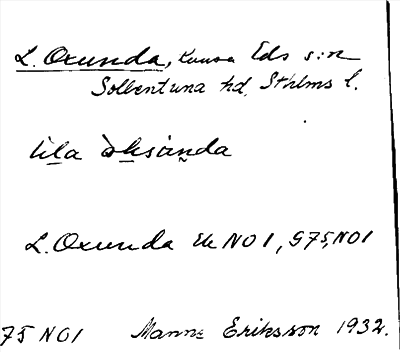 L. Oxunda, Eds s:n
Sollentuna hd, Sthlms l.
lila
L. Oxunda Ek NO 1, G75, NO1
75 NO1 Manne Eriksson 1932.